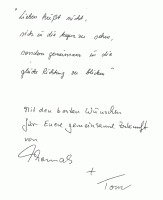 "Lieben heißt nicht,
sich in die Augen zu sehen,
sondern gemeinsam in die
gleiche Richtung zu blicken"
Mit den besten Wünschen
für Eure gemeinsame Zukunft
von
Thomas
+
Tom